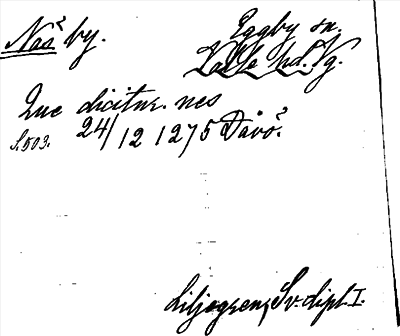 Näs² by.
Eggby sn.
Valla hd. Vg.
Que dicitur. nes
S. 503. 24/12 1275 Davö².
Liljegren, Sv. dipl. I.